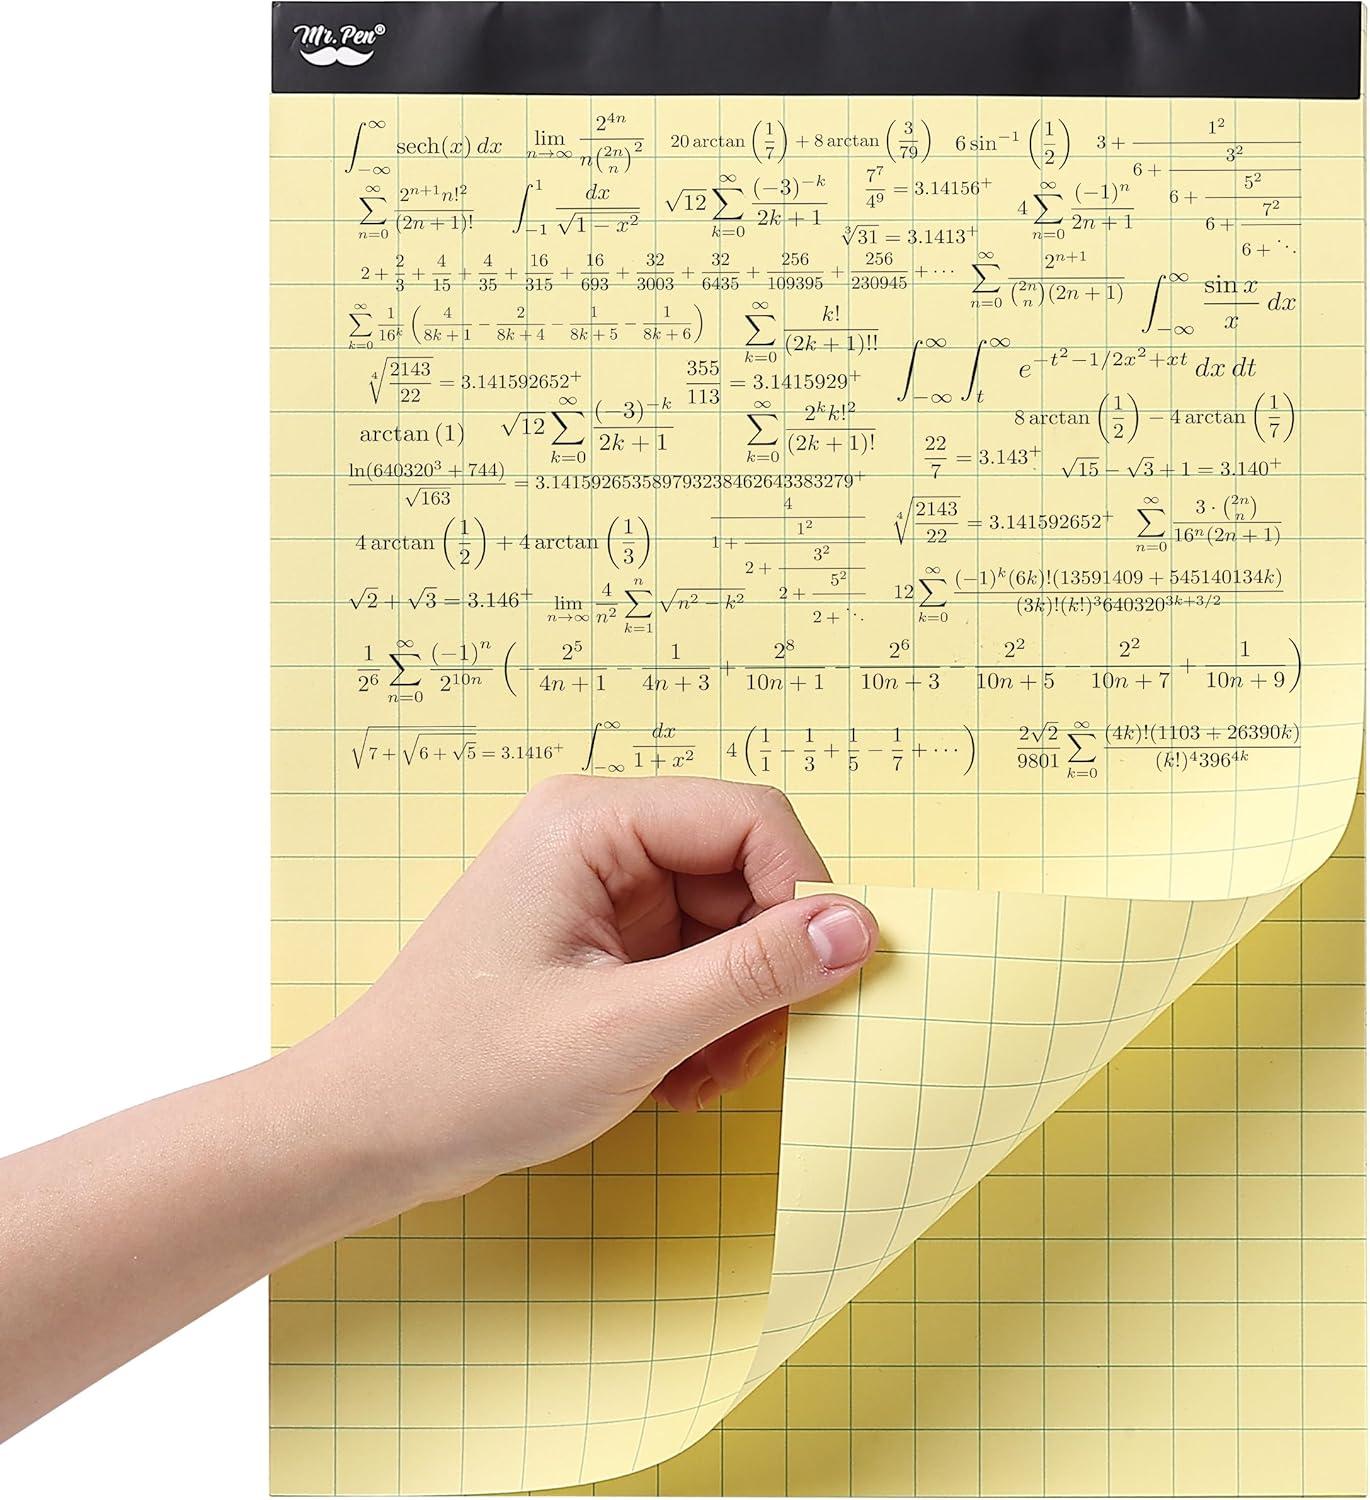 Mr. Pen®
∫_{-∞}^{∞} sech(x) dx   lim_{n→∞} 2^{4n} / (n \binom{2n}{n}^2)   20 arctan(1/7) + 8 arctan(3/79)   6 sin^{-1}(1/2)   3 + 1^2/(6 + 3^2/(6 + 5^2/(6 + 7^2/(6 + ⋱))))
∑_{n=0}^{∞} 2^{n+1} n!^2 / (2n+1)!   ∫_{-1}^{1} dx/√(1−x^2)   √12 ∑_{k=0}^{∞} (−3)^{−k}/(2k+1)   7^7/4^9 = 3.14156^+   4 ∑_{n=0}^{∞} (−1)^n/(2n+1)
∛31 = 3.1413^+
2 + 2/3 + 4/15 + 4/35 + 16/315 + 16/693 + 32/3003 + 32/6435 + 256/109395 + 256/230945 + ⋯   ∑_{n=0}^{∞} 2^{n+1} / (\binom{2n}{n}(2n+1))   ∫_{-∞}^{∞} sin x / x dx
∑_{k=0}^{∞} 1/16^k (4/(8k+1) − 2/(8k+4) − 1/(8k+5) − 1/(8k+6))   ∑_{k=0}^{∞} k!/(2k+1)!!   ∫_{-∞}^{∞} ∫_{t}^{∞} e^{−t^2−1/2x^2+xt} dx dt
∜(2143/22) = 3.141592652^+   355/113 = 3.1415929^+
arctan(1)   √12 ∑_{k=0}^{∞} (−3)^{−k}/(2k+1)   ∑_{k=0}^{∞} 2^k k!^2/(2k+1)!   8 arctan(1/2) − 4 arctan(1/7)
22/7 = 3.143^+   √15 − √3 + 1 = 3.140^+
ln(640320^3 + 744)/√163 = 3.14159265358979323846264338327​9^+
4 arctan(1/2) + 4 arctan(1/3)   4/(1 + 1^2/(2 + 3^2/(2 + 5^2/(2 + ⋱))))   ∜(2143/22) = 3.141592652^+   ∑_{n=0}^{∞} 3·\binom{2n}{n} / (16^n(2n+1))
√2 + √3 = 3.146^+   lim_{n→∞} 4/n^2 ∑_{k=1}^{n} √(n^2 − k^2)   12 ∑_{k=0}^{∞} (−1)^k(6k)!(13591409 + 545140134k) / ((3k)!(k!)^3 640320^{3k+3/2})
1/2^6 ∑_{n=0}^{∞} (−1)^n/2^{10n} (−2^5/(4n+1) − 1/(4n+3) + 2^8/(10n+1) − 2^6/(10n+3) − 2^2/(10n+5) − 2^2/(10n+7) + 1/(10n+9))
√(7 + √(6 + √5)) = 3.1416^+   ∫_{-∞}^{∞} dx/(1+x^2)   4(1/1 − 1/3 + 1/5 − 1/7 + ⋯)   2√2/9801 ∑_{k=0}^{∞} (4k)!(1103 + 26390k) / ((k!)^4 396^{4k})